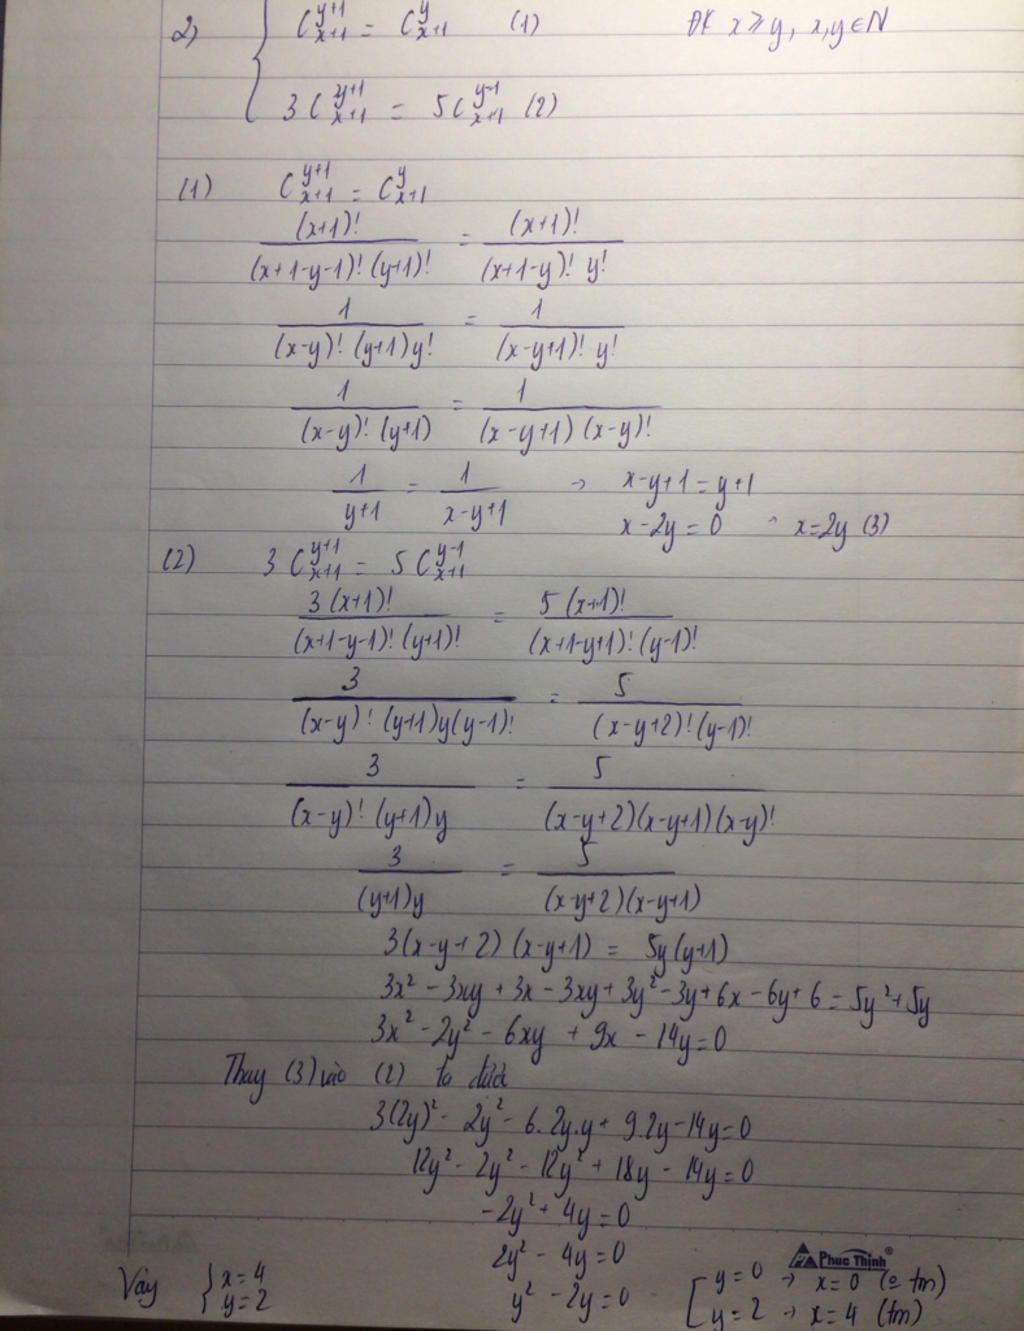 2) { C_{x+1}^{y+1} = C_{x+1}^{y} (1) ĐK x ⩾ y, x,y ∈ N
3 C_{x+1}^{y+1} = 5 C_{x+1}^{y-1} (2)
(1) C_{x+1}^{y+1} = C_{x+1}^{y}
(x+1)! / (x+1-y-1)! (y+1)! = (x+1)! / (x+1-y)! y!
1 / (x-y)! (y+1)y! = 1 / (x-y+1)! y!
1 / (x-y)! (y+1) = 1 / (x-y+1) (x-y)!
1 / y+1 = 1 / x-y+1 → x-y+1 = y+1
x-2y = 0 x=2y (3)
(2) 3 C_{x+1}^{y+1} = 5 C_{x+1}^{y-1}
3 (x+1)! / (x+1-y-1)! (y+1)! = 5 (x+1)! / (x+1-y+1)! (y-1)!
3 / (x-y)! (y+1)y(y-1)! = 5 / (x-y+2)! (y-1)!
3 / (x-y)! (y+1)y = 5 / (x-y+2)(x-y+1)(x-y)!
3 / (y+1)y = 5 / (x-y+2)(x-y+1)
3(x-y+2) (x-y+1) = 5y(y+1)
3x² - 3xy + 3x - 3xy + 3y² - 3y + 6x - 6y + 6 = 5y² + 5y
3x² - 2y² - 6xy + 9x - 14y = 0
Thay (3) vào (2) ta được
3(2y)² - 2y² - 6.2y.y + 9.2y - 14y = 0
12y² - 2y² - 12y² + 18y - 14y = 0
-2y² + 4y = 0
2y² - 4y = 0
y² - 2y = 0 [ y = 0 → x = 0 (o tm)
y = 2 → x = 4 (tm)
Vậy { x = 4
y = 2
Phuc Thinh®